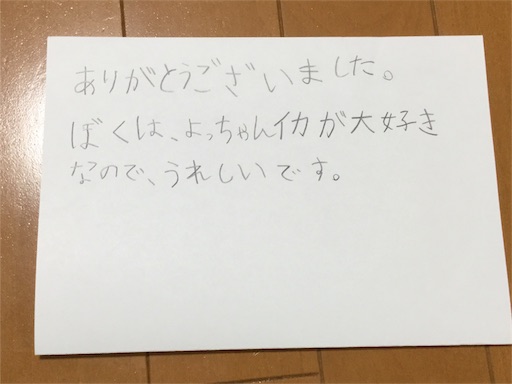 ありがとうございました。
ぼくは、よっちゃんイカが大好き
なので、うれしいです。